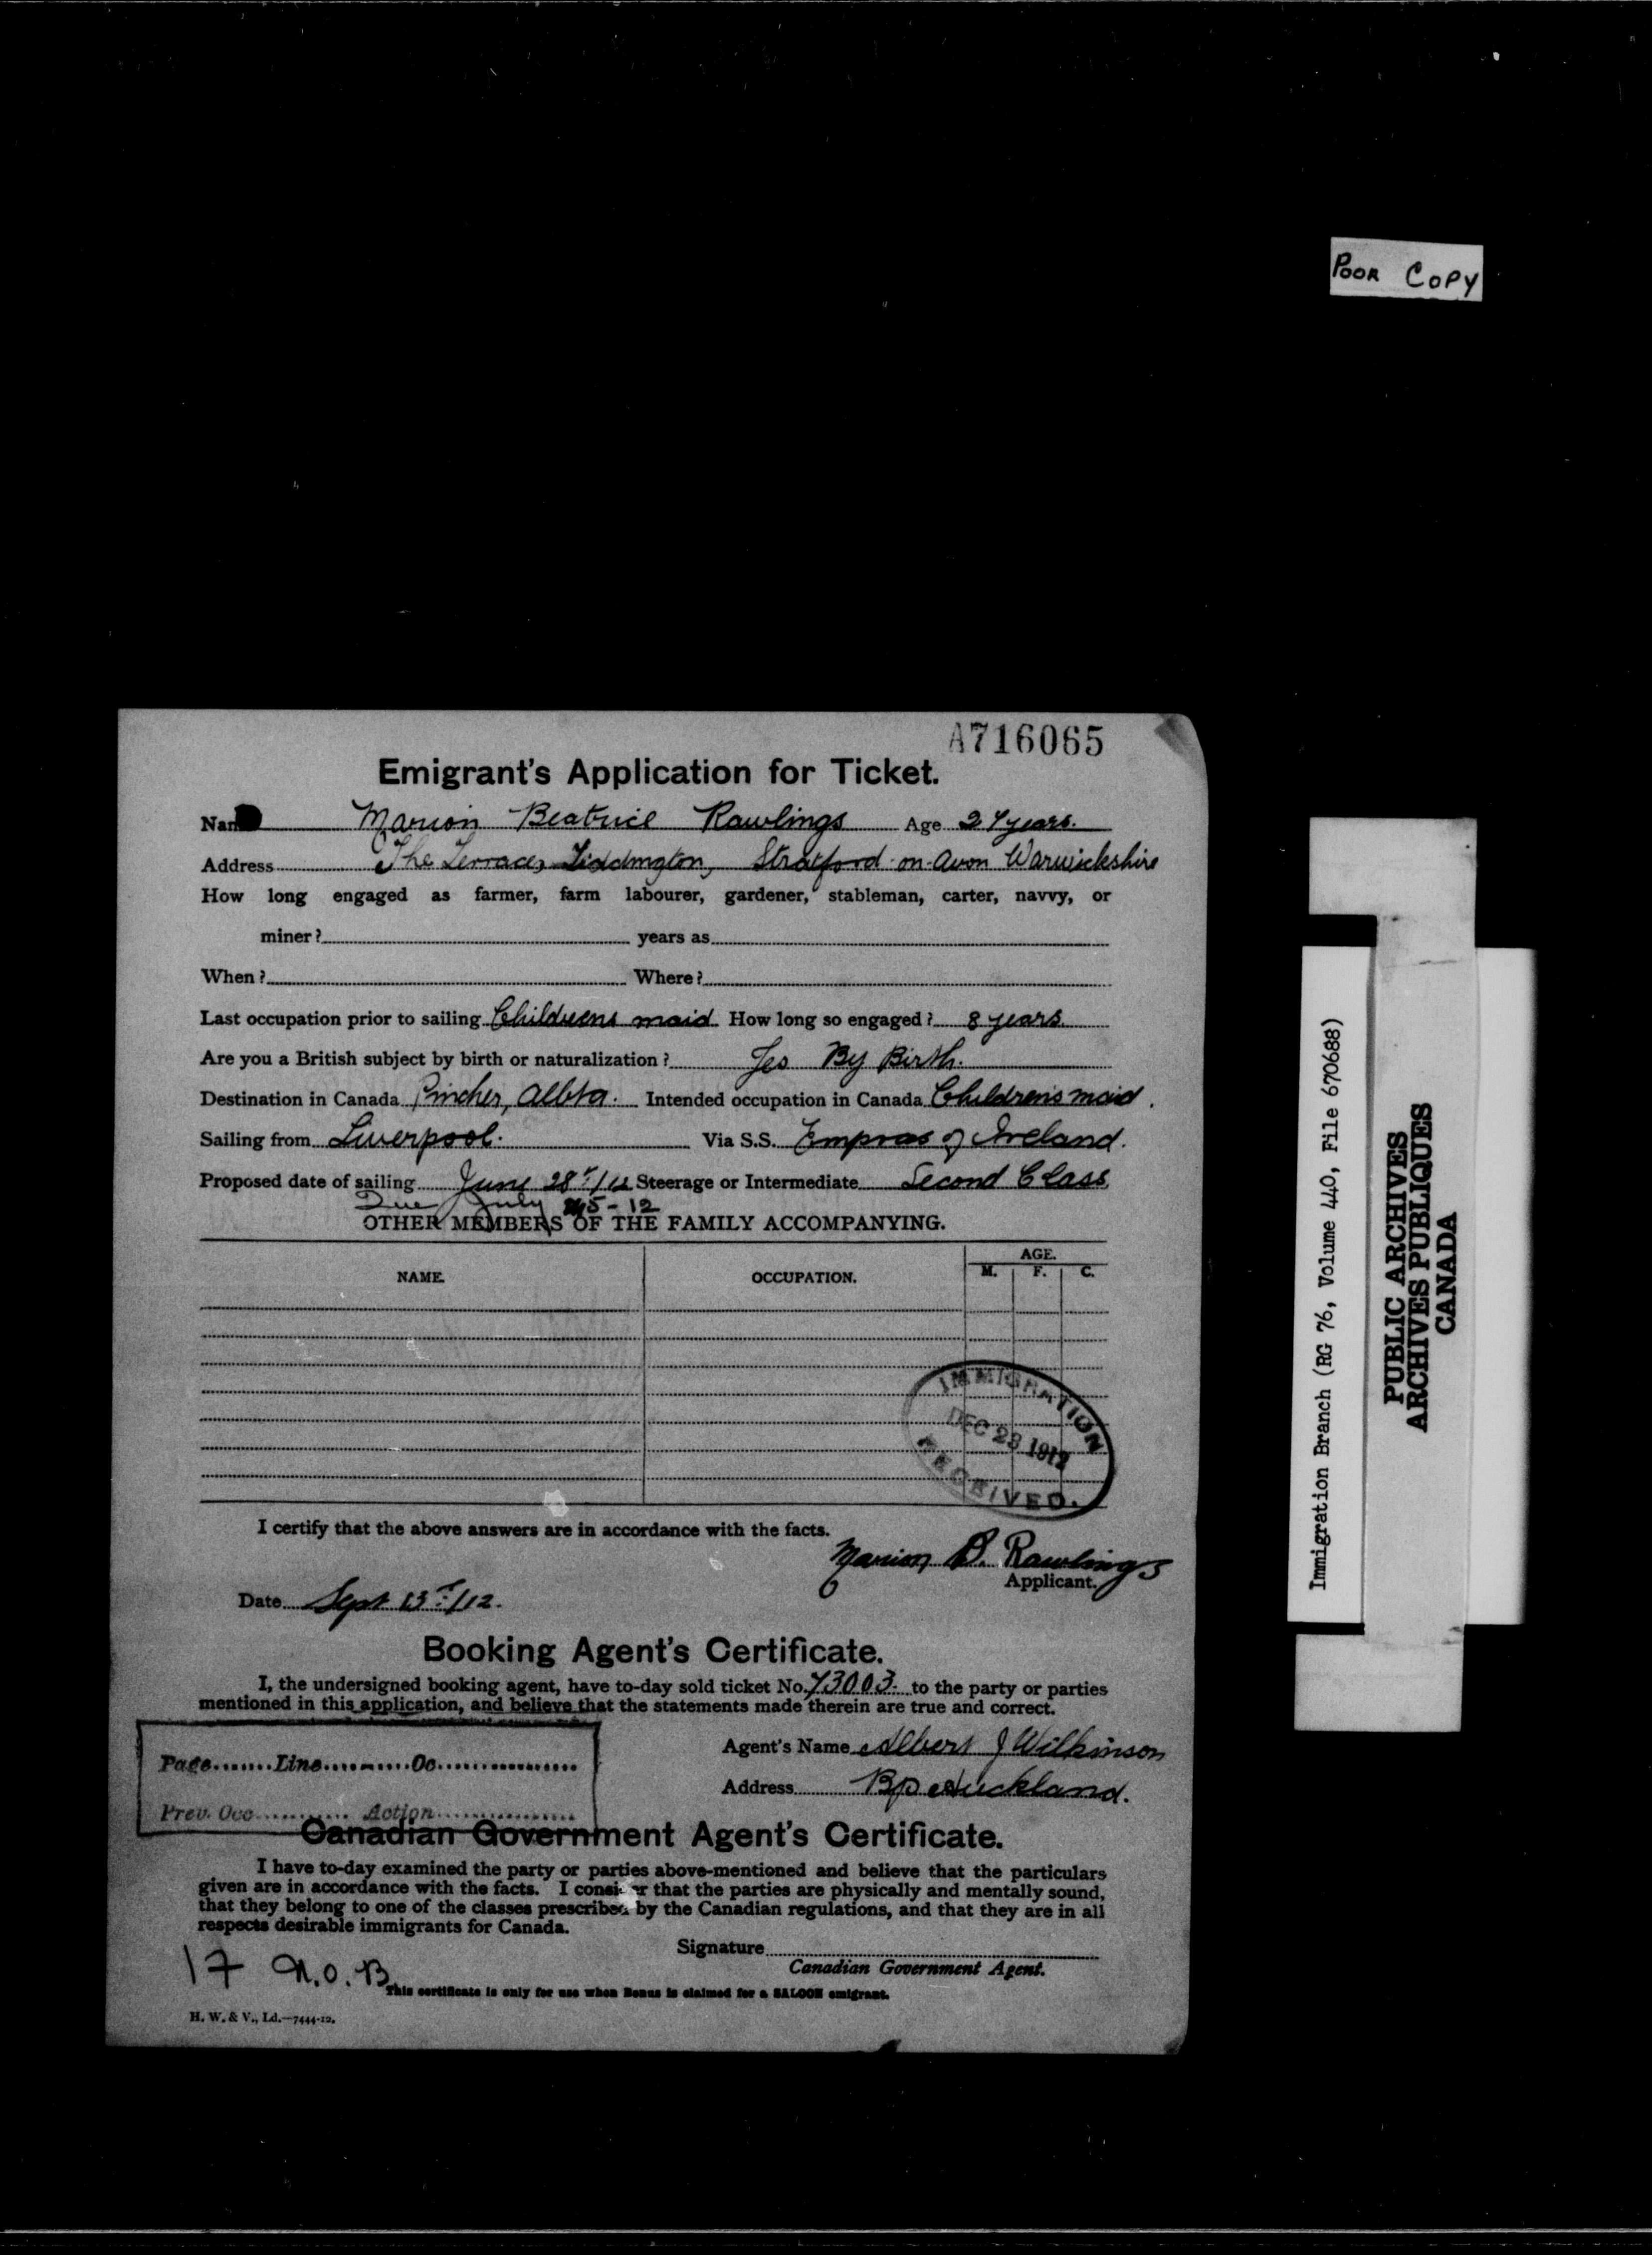 POOR COPY
A716065
Emigrant's Application for Ticket.
Nam Marion Beatrice Rawlings Age 24 years.
Address The Terrace, Tiddington, Stratford-on-Avon Warwickshire
How long engaged as farmer, farm labourer, gardener, stableman, carter, navvy, or
miner? years as
When? Where?
Last occupation prior to sailing Childrens maid How long so engaged? 8 years
Are you a British subject by birth or naturalization? Yes By Birth.
Destination in Canada Pincher, Albta. Intended occupation in Canada Children's maid.
Sailing from Liverpool. Via S.S. Empress of Ireland.
Proposed date of sailing June 28th/12 Steerage or Intermediate Second Class
Due July 5-12
OTHER MEMBERS OF THE FAMILY ACCOMPANYING.
AGE.
NAME. OCCUPATION. M. F. C.
IMMIGRATION
DEC 23 1912
RECEIVED.
I certify that the above answers are in accordance with the facts.
Marion B. Rawlings
Applicant.
Date Sept 13th/12.
Booking Agent's Certificate.
I, the undersigned booking agent, have to-day sold ticket No. 73003 to the party or parties
mentioned in this application, and believe that the statements made therein are true and correct.
Agent's Name Albert J Wilkinson
Page Line Oc
Address Bp Auckland.
Prev. Occ Action
Canadian Government Agent's Certificate.
I have to-day examined the party or parties above-mentioned and believe that the particulars
given are in accordance with the facts. I consider that the parties are physically and mentally sound,
that they belong to one of the classes prescribed by the Canadian regulations, and that they are in all
respects desirable immigrants for Canada.
Signature
Canadian Government Agent.
17 N.O.B.
This certificate is only for use when Bonus is claimed for a SALOON emigrant.
H. W. & V., Ld.—7444-12.
Immigration Branch (RG 76, Volume 440, File 670688)
PUBLIC ARCHIVES
ARCHIVES PUBLIQUES
CANADA